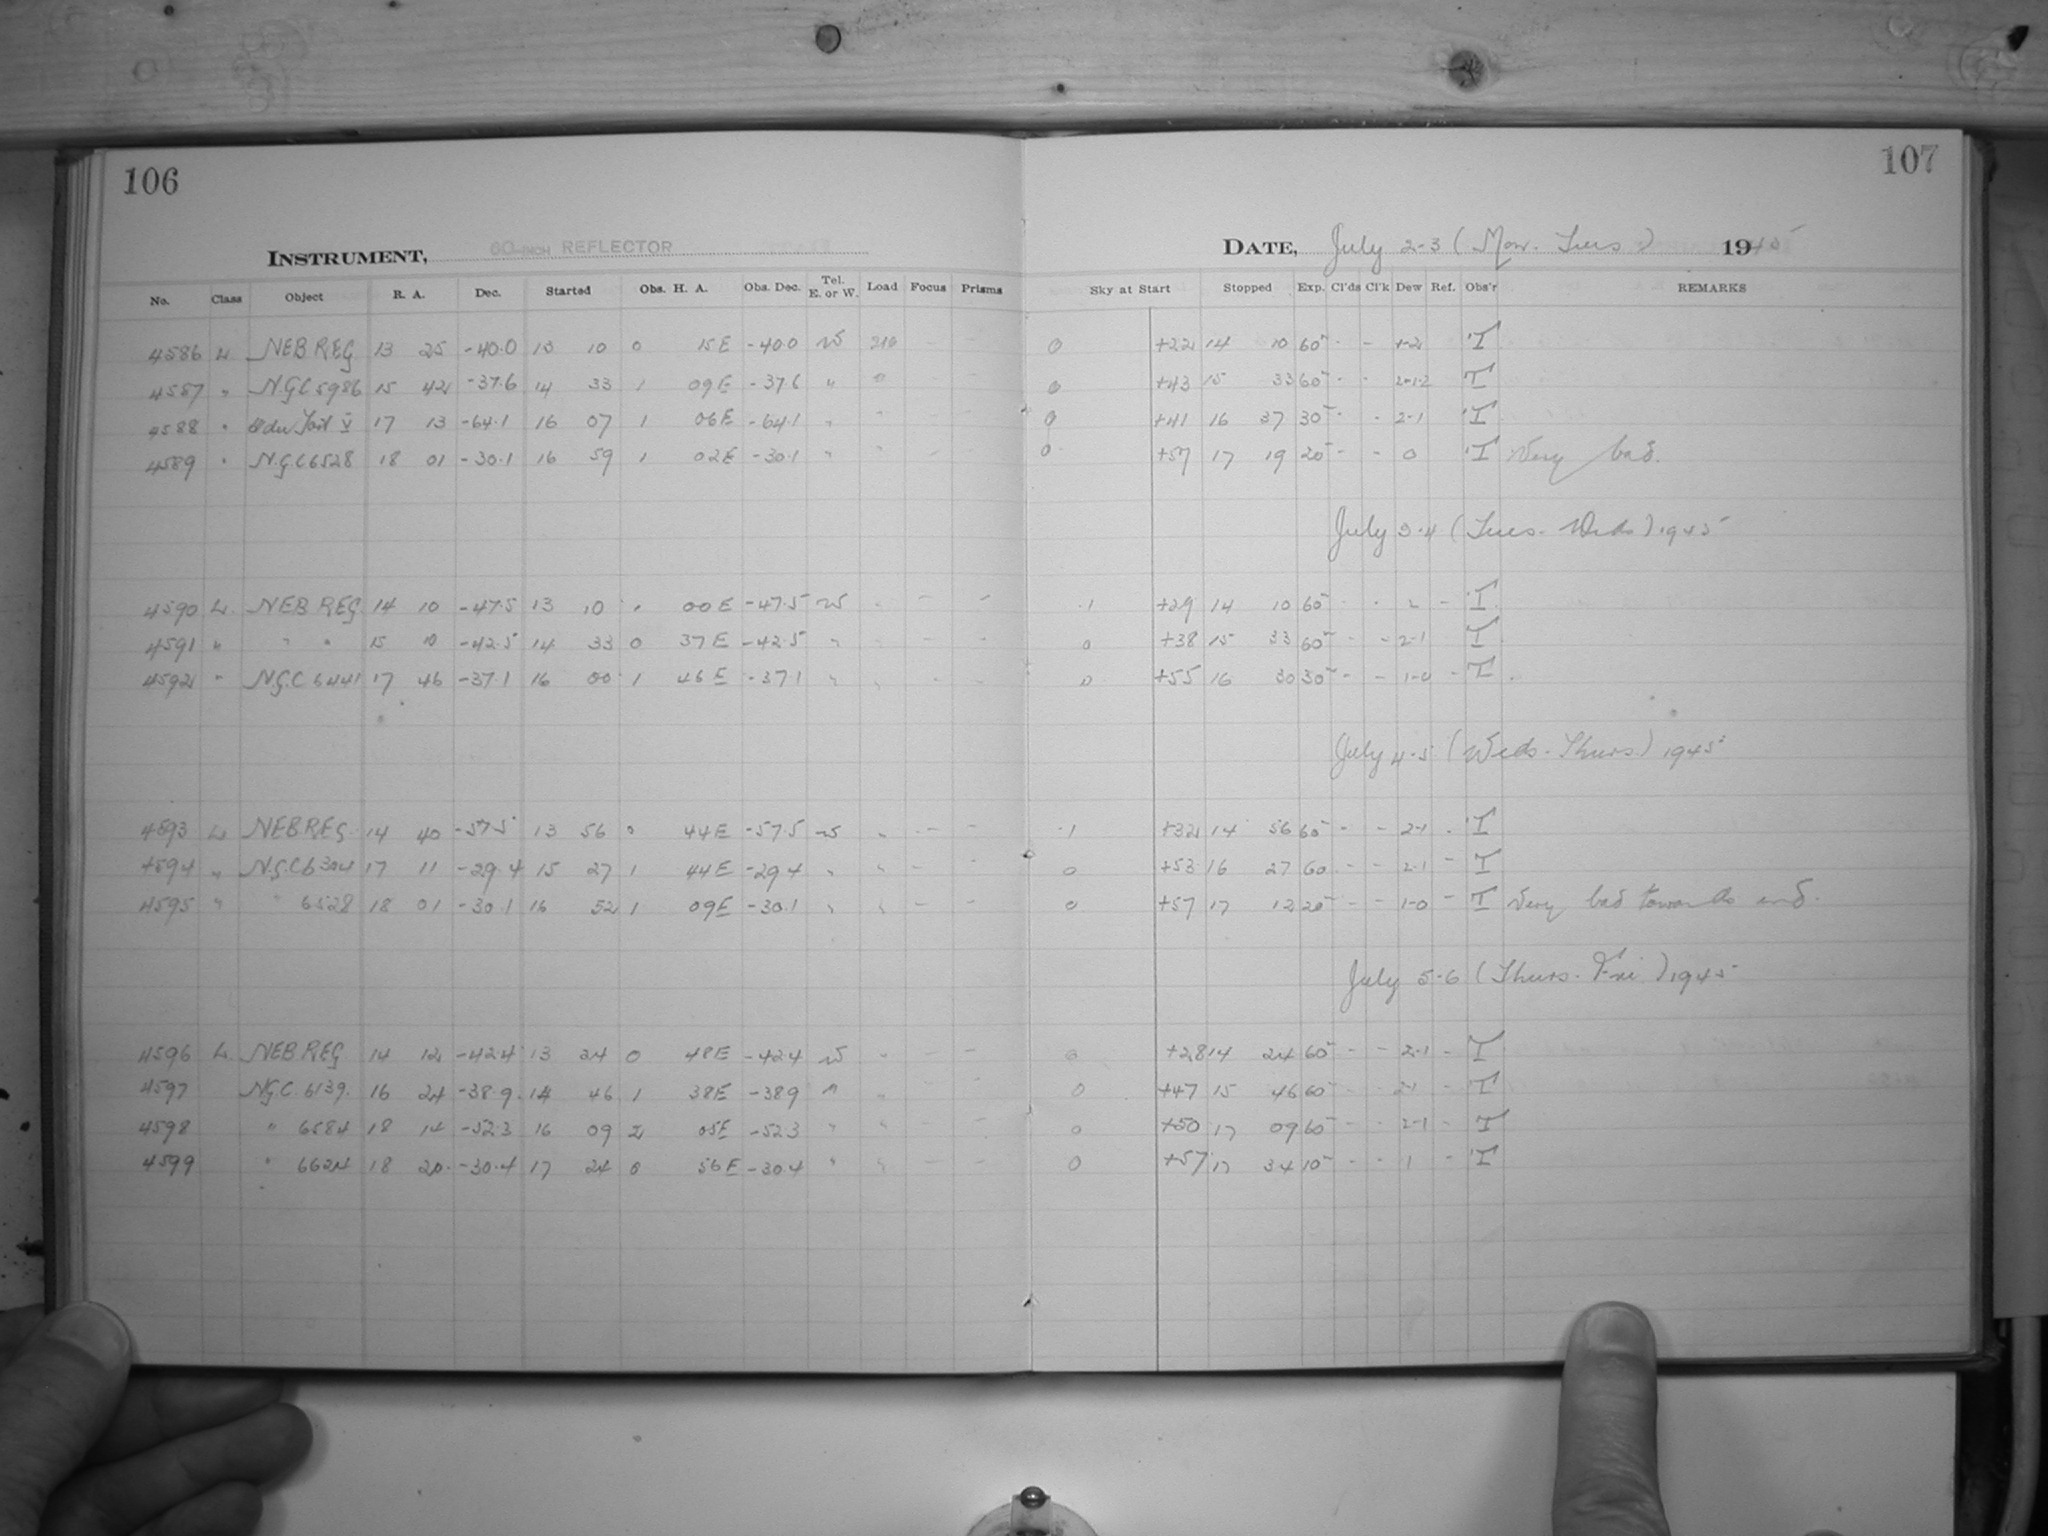 106
107
INSTRUMENT, 60-INCH REFLECTOR
DATE, July 2-3 (Mon. Tues.) 1945
No. Class Object R. A. Dec. Started Obs. H. A. Obs. Dec. Tel. E. or W. Load Focus Prisms Sky at Start Stopped Exp. Cl'ds Cl'k Dew Ref. Obs'r REMARKS
4586 L NEB REG 13 25 -40.0 13 10 0 15E -40.0 W 210 - - 0 +22 14 10 60 - - 1-2 T
4587 " NGC 5986 15 42 -37.6 14 33 1 09E -37.6 " " - - 0 +43 15 33 60 - - 2-1-2 T
4588 " du Toit V 17 13 -64.1 16 07 1 06E -64.1 " " - - 0 +41 16 37 30 - - 2-1 T
4589 " N.G.C 6528 18 01 -30.1 16 59 1 02E -30.1 " " - - 0 +57 17 19 20 - - 0 T Very bad.
July 3-4 (Tues. Weds) 1945
4590 L. NEB REG 14 10 -47.5 13 10 1 00E -47.5 W " - - -1 +29 14 10 60 - - 2 - T
4591 " " " 15 10 -42.5 14 33 0 37E -42.5 " 0 +38 15 33 60 - - 2-1 T
4592 " N.G.C 6441 17 46 -37.1 16 00 1 46E -37.1 " " - - 0 +55 16 30 30 - - 1-0 - T
July 4-5 (Weds-Thurs.) 1945
4593 L NEB REG. 14 40 -57.5 13 56 0 44E -57.5 W " - - -1 +32 14 56 60 - - 2-1 - T
4594 " N.G.C 6304 17 11 -29.4 15 27 1 44E -29.4 " " - - 0 +53 16 27 60 - - 2-1 - T
4595 " " 6528 18 01 -30.1 16 52 1 09E -30.1 " " - - 0 +57 17 12 20 - - 1-0 - T Very bad towards end.
July 5-6 (Thurs. Fri.) 1945
4596 L. NEB REG 14 12 -42.4 13 24 0 48E -42.4 W " - - 0 +28 14 24 60 - - 2-1 - T
4597 NGC. 6139. 16 24 -38.9 14 46 1 38E -38.9 " " - - 0 +47 15 46 60 - - - T
4598 " 6584 18 14 -52.3 16 09 2 05E -52.3 " " - - 0 +50 17 09 60 - - 2-1 - T
4599 " 6624 18 20 -30.4 17 24 0 56E -30.4 " " - - 0 +57 17 34 10 - - 1 - T